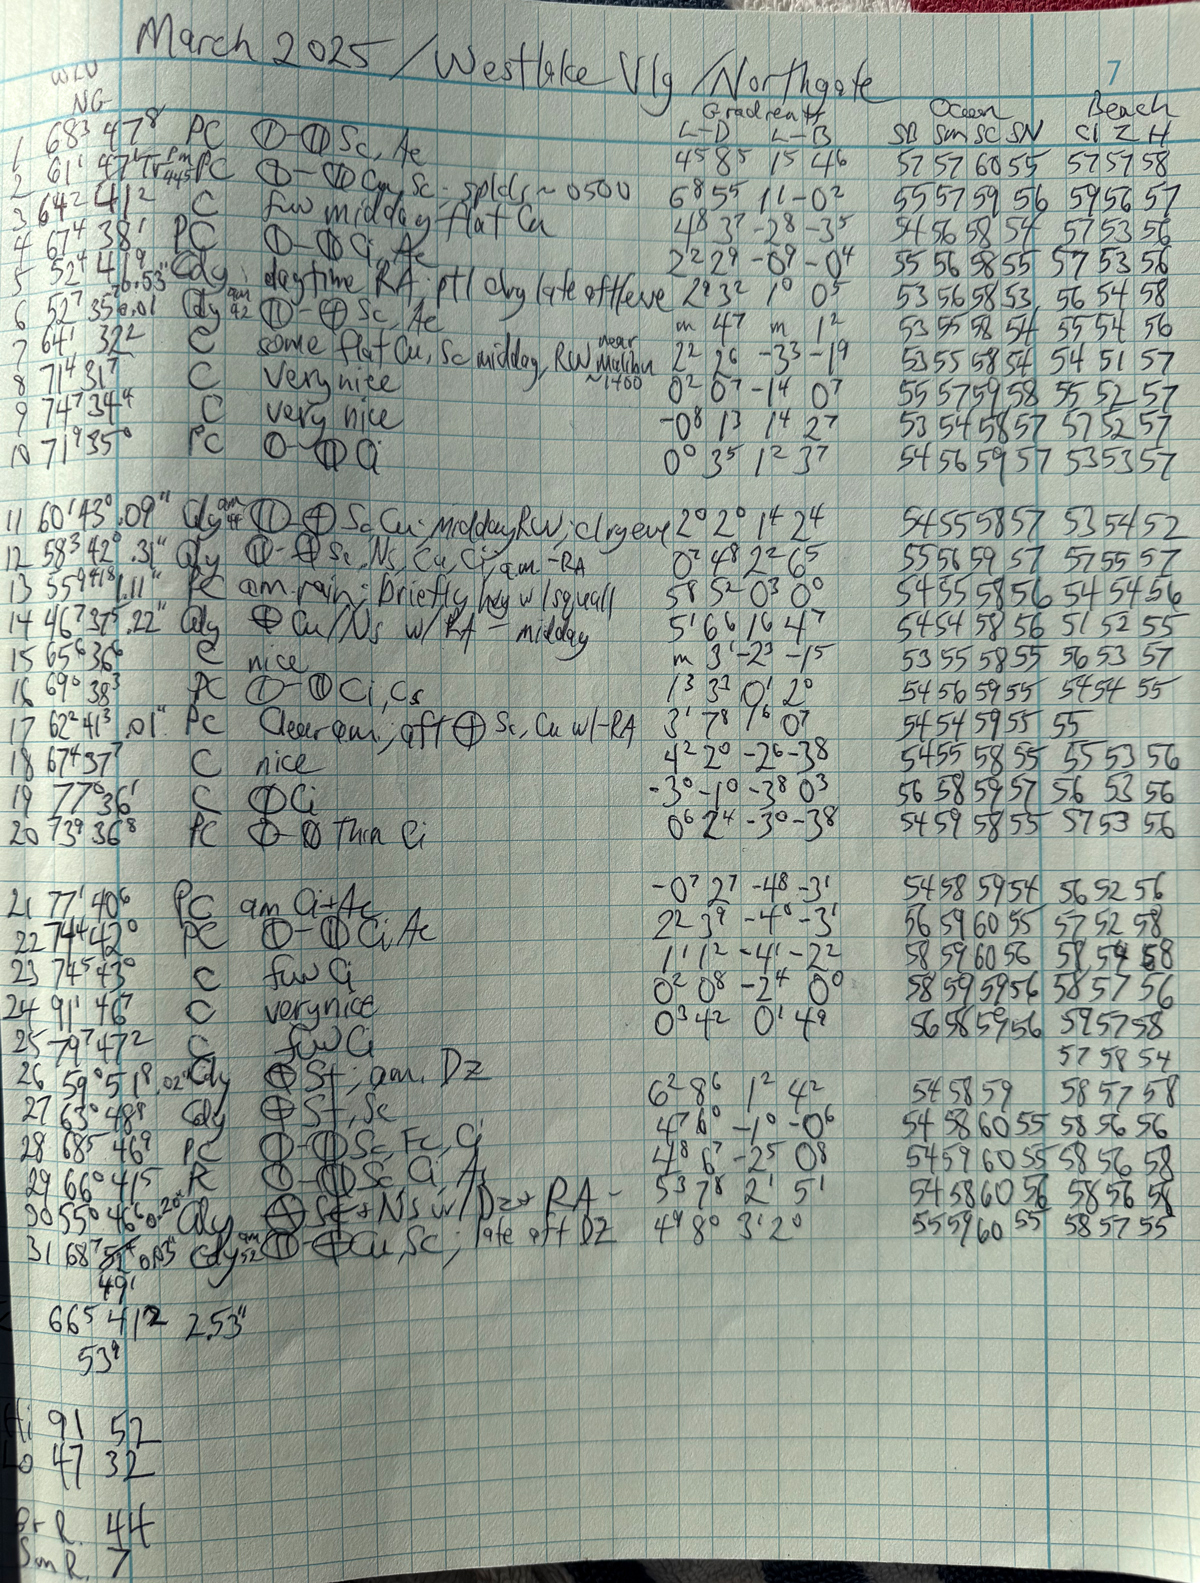 March 2025 / Westlake Vlg / Northgate 7
WLV
NG
Gradients Ocean Beach
L-D L-B SB Sm SC SN CI Z H
1 68³ 47⁸ PC ⦶-⦶ Sc, Ac 4⁵ 8⁵ 1⁵ 4⁶ 57 57 60 55 57 57 58
2 61¹ 47¹ Tr pm 445 PC ⦶-⦶ Cu, Sc; spkls ~0500 6⁸ 5⁵ 1¹ -0² 55 57 59 56 59 56 57
3 64² 41² C few midday flat Cu 4⁸ 3⁷ -2⁸ -3⁵ 54 56 58 54 57 53 56
4 67⁴ 38¹ PC ⦶-⦶ Ci, Ac 2² 2⁹ -0⁹ -0⁴ 55 56 58 55 57 53 56
5 52⁴ 41⁹ 0.53" Cldy daytime RA; ptl clrg late aft/eve 2⁹ 3² 1⁰ 0⁵ 53 56 58 53 56 54 58
6 52⁷ 35⁰ 0.01 Cldy am 42 ⦶-⊕ Sc, Ac m 4⁷ m 1² 53 55 58 54 55 54 56
7 64¹ 32² C some flat Cu, Sc midday, RW near Malibu ~1400 2² 2⁶ -3³ -1⁹ 53 55 58 54 54 51 57
8 71⁴ 31⁷ C very nice 0² 0⁷ -1⁴ 0⁷ 55 57 59 58 55 52 57
9 74⁷ 34⁴ C very nice -0⁸ 1³ 1⁴ 2⁷ 53 54 58 57 57 52 57
10 71⁹ 35⁰ PC ⦶-⦶ Ci 0⁰ 3⁵ 1² 3⁷ 54 56 59 57 53 53 57
11 60¹ 43⁰ .09" Cldy am 44 ⦶-⊕ Sc, Cu; midday RW; clrg eve 2⁰ 2⁰ 1⁴ 2⁴ 54 55 58 57 53 54 52
12 58³ 42⁰ .31" Cldy ⦶-⊕ Sc, Ns, Cu, Ci; am -RA 0² 4⁸ 2² 6⁵ 55 56 59 57 57 55 57
13 55⁹ 41⁸ 1.11" PC am rain; briefly hvy w/ squall 5⁸ 5² 0³ 0⁰ 54 55 58 56 54 54 56
14 46⁷ 37⁵ .22" Cldy ⊕ Cu/Ns w/ RA - midday 5¹ 6⁶ 1⁶ 4⁷ 54 54 58 56 51 52 55
15 65⁶ 36⁶ C nice m 3¹ -2³ -1⁵ 53 55 58 55 56 53 57
16 69⁰ 38³ PC ⦶-⦶ Ci, Cs 1³ 3² 0¹ 2⁰ 54 56 59 55 54 54 55
17 62² 41³ .01" PC Clear am; aft ⊕ Sc, Cu w/-RA 3¹ 7⁸ 1⁶ 0⁷ 54 54 59 55 55
18 67⁴ 37⁷ C nice 4² 2⁰ -2⁶ -3⁸ 54 55 58 55 55 53 56
19 77⁰ 36¹ C ⦶ Ci -3⁰ -1⁰ -3⁸ 0³ 56 58 59 57 56 53 56
20 73⁹ 36⁸ PC ⦶-⦶ Thin Ci 0⁶ 2⁴ -3⁰ -3⁸ 54 59 58 55 57 53 56
21 77¹ 40⁶ PC am Ci+Ac -0⁷ 2⁷ -4⁸ -3¹ 54 58 59 54 56 52 56
22 74⁴ 42⁰ PC ⦶-⦶ Ci, Ac 2² 3⁹ -4⁰ -3¹ 56 59 60 55 57 52 58
23 74⁵ 43⁰ C few Ci 1¹ 1² -4¹ -2² 58 59 60 56 58 54 58
24 91¹ 46⁷ C very nice 0² 0⁸ -2⁴ 0⁰ 58 59 59 56 58 57 56
25 79⁷ 47² C few Ci 0³ 4² 0¹ 4⁹ 56 58 59 56 59 57 58
26 59⁰ 51⁸ .02" Cldy ⊕ St; am. Dz 57 58 54
27 63⁰ 48⁸ Cldy ⊕ St, Sc 6² 8⁶ 1² 4² 54 58 59 58 57 58
28 68⁵ 46⁹ PC ⦶-⦶ Sc, Fc, Ci 4⁷ 6⁰ -1⁰ -0⁶ 54 58 60 55 58 56 56
29 66⁰ 41⁵ PC ⦶-⦶ Sc, Ci, As 4⁸ 6⁷ -2⁵ 0⁸ 54 59 60 55 58 56 58
30 55⁰ 46⁶ 0.20" Cldy ⊕ St+Ns w/ Dz+RA- 5³ 7⁸ 2¹ 5¹ 54 58 60 56 58 56 58
31 68⁷ 0.03" Cldy am 52 ⦶-⊕ Cu, Sc; late aft DZ 4⁹ 8⁰ 3¹ 2⁰ 55 59 60 55 58 57 55
49¹
66⁵ 41² 2.53"
53⁹
Hi 91 52
Lo 47 32
44
7